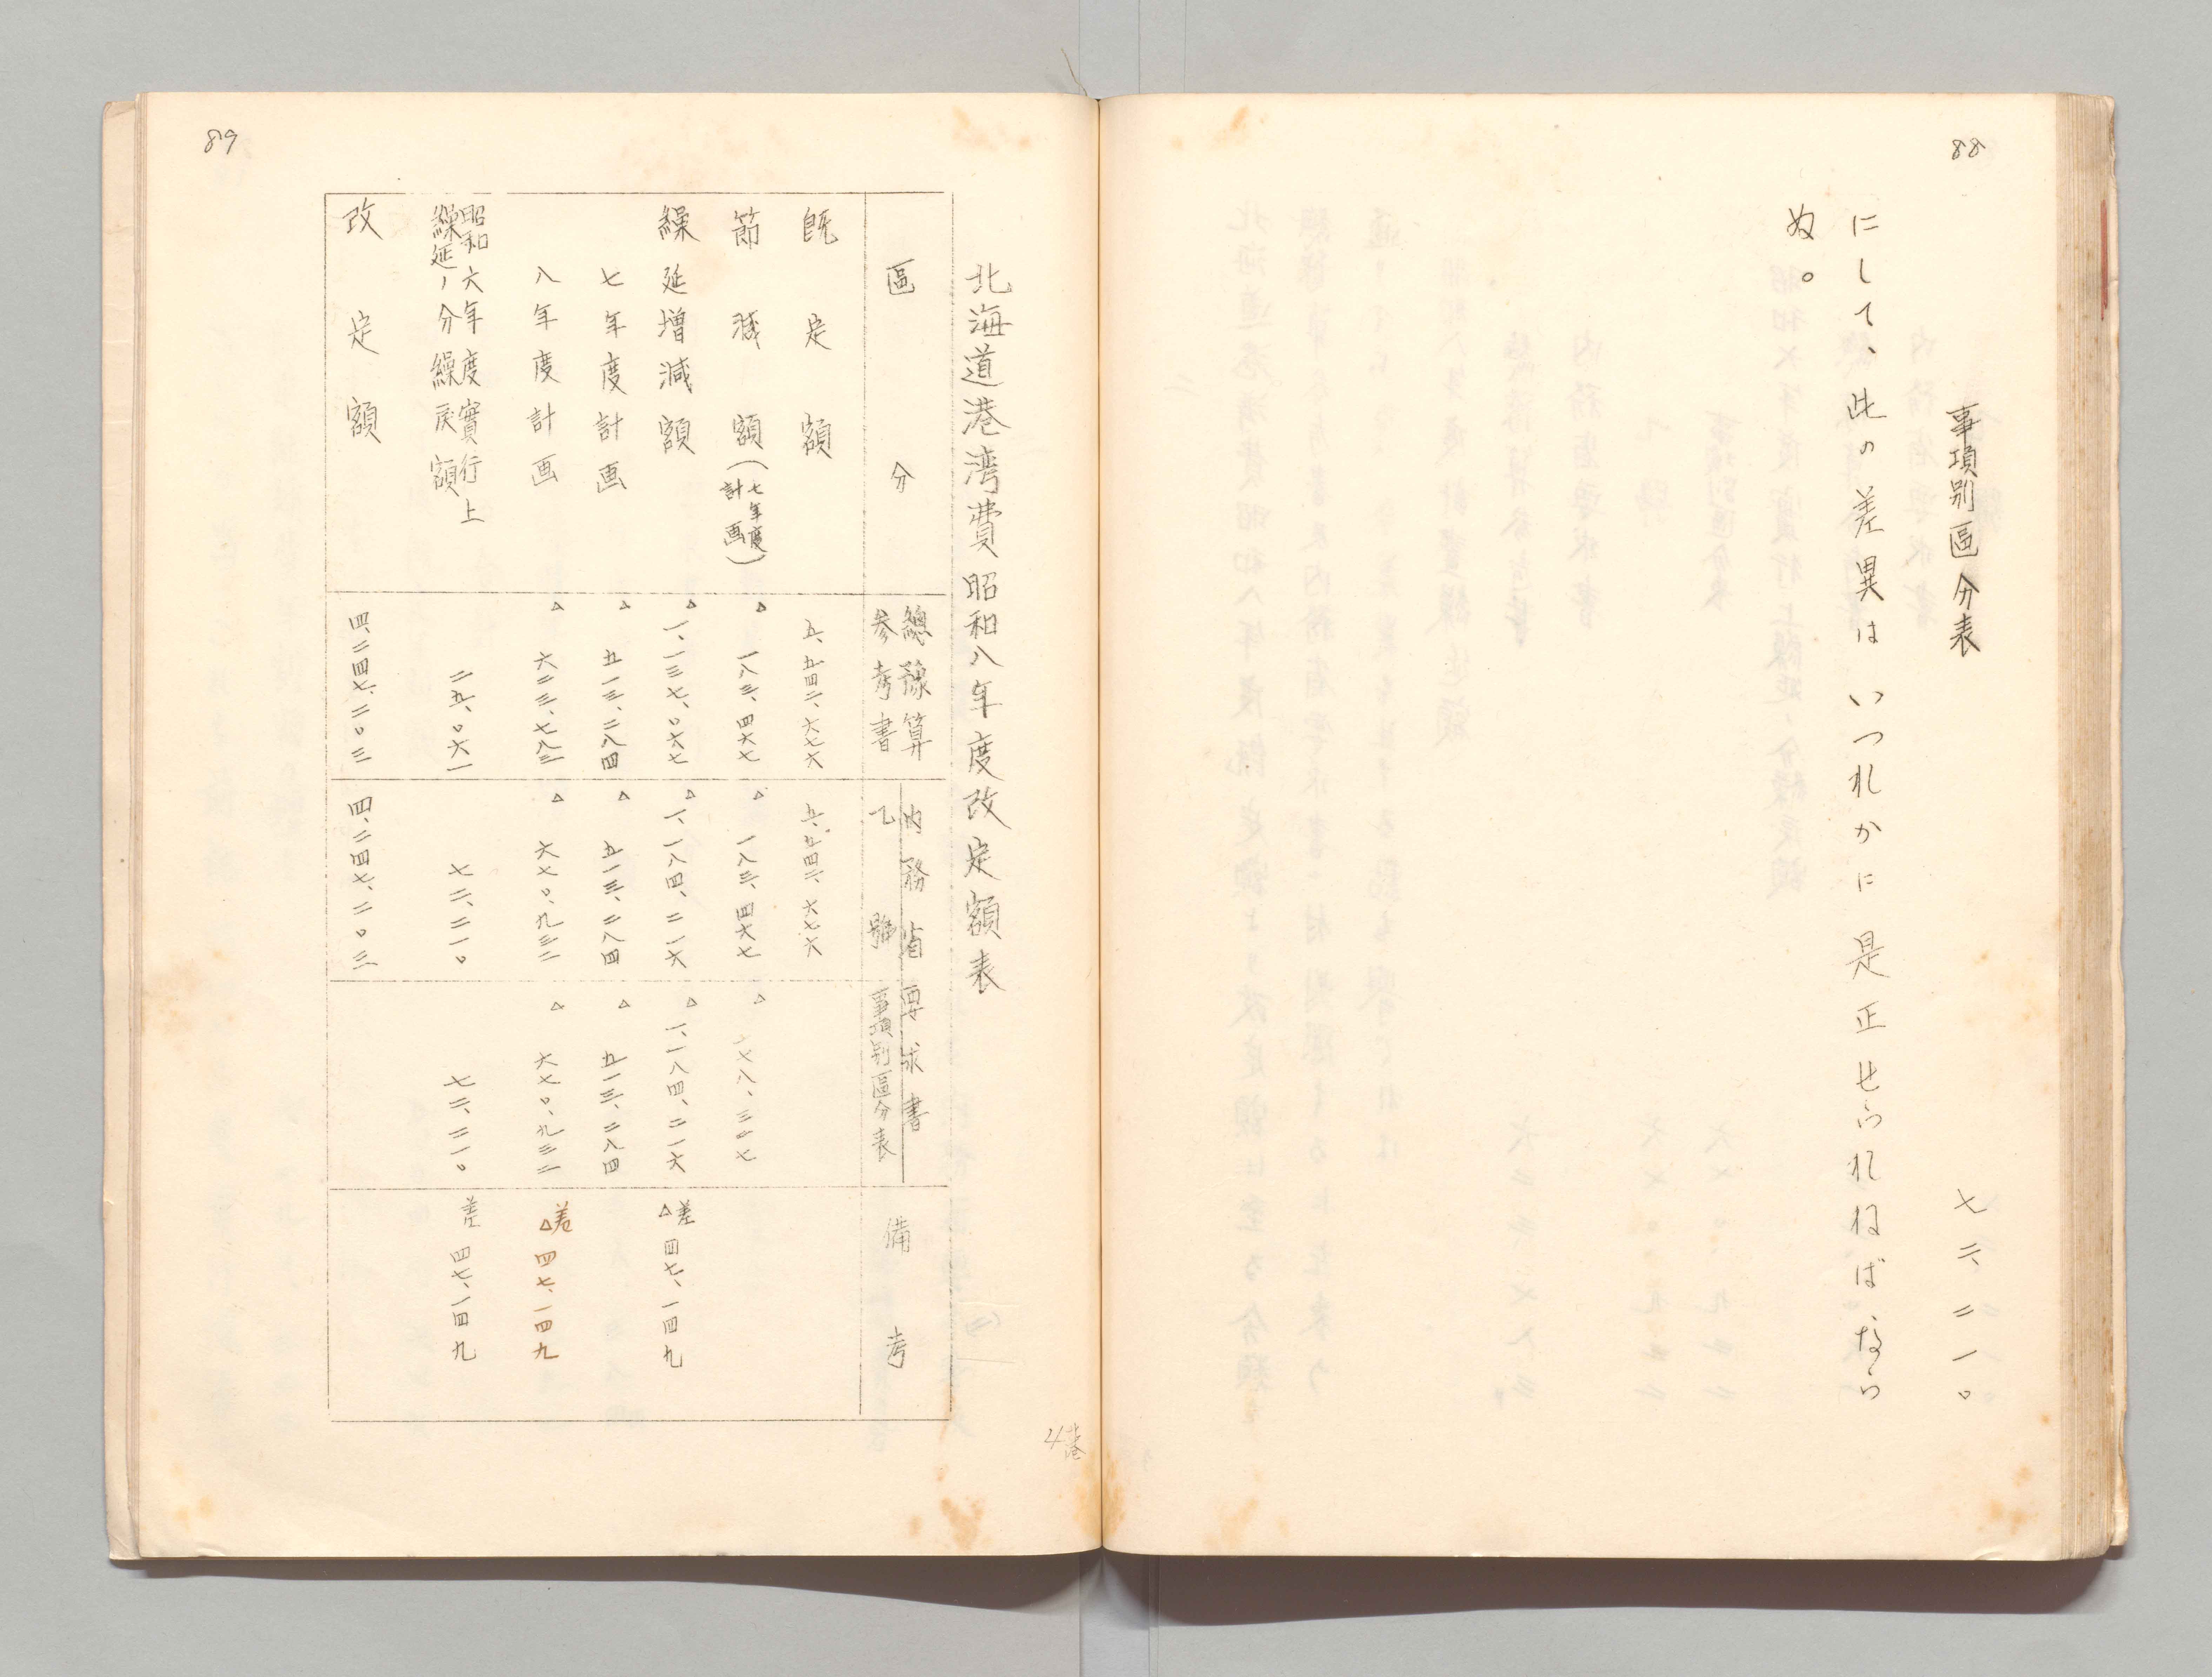 88
事項別區分表 七二、二一〇
にして、此の差異はいつれかに是正せられねばなら
ぬ。
89
北海道港湾費昭和八年度改定額表
區分
總豫算
參考書
内務省要求書
乙號
事項別區分表
備考
既定額 五、五四二、六七六 五、五四二、六七六
節減額(七年度計画) △一八三、四六七 △一八三、四六七 △
繰延増減額 △一、一三七、〇六七 △一、一八四、二一六 △一、一八四、二一六 差△四七、一四九
七年度計画 △五一三、二八四 △五一三、二八四 △五一三、二八四
八年度計画 △六二三、七八三 △六七〇、九三二 △六七〇、九三二 差△四七、一四九
昭和六年度實行上
繰延ノ分繰戻額 二五、〇六一 七二、二一〇 七二、二一〇 差四七、一四九
改定額 四、二四七、二〇三 四、二四七、二〇三
4 北港